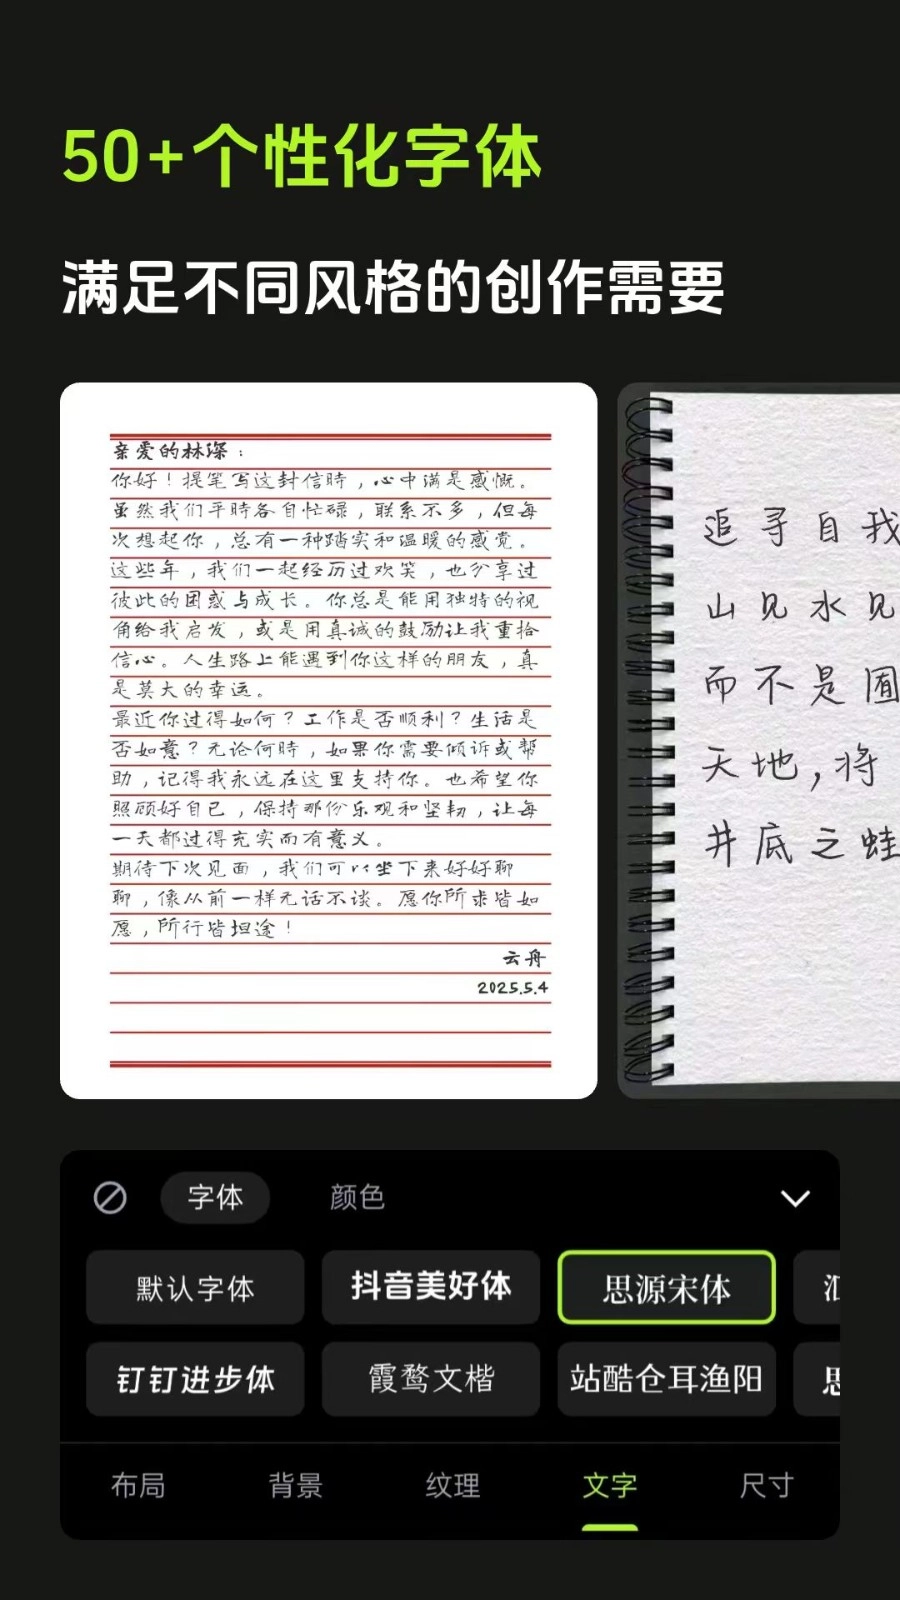 50+个性化字体
满足不同风格的创作需要
亲爱的林深：
你好！提笔写这封信時，心中满是感慨。
虽然我们平時各自忙碌，联系不多，但每
次想起你，总有一种踏实和温暖的感觉。
这些年，我们一起经历过欢笑，也分享过
彼此的困惑与成长。你总是能用独特的视
角给我启发，或是用真诚的鼓励让我重拾
信心。人生路上能遇到你这样的朋友，真
是莫大的幸运。
最近你过得如何？工作是否顺利？生活是
否如意？无论何時，如果你需要倾诉或帮
助，记得我永远在这里支持你。也希望你
照顾好自己，保持那份乐观和坚韧，让每
一天都过得充实而有意义。
期待下次见面，我们可以坐下来好好聊
聊，像从前一样无话不谈。愿你所求皆如
愿，所行皆坦途！
云舟
2025.5.4
追寻自我
山见水见
而不是囿
天地，将
井底之蛙
字体
颜色
默认字体
抖音美好体
思源宋体
钉钉进步体
霞鹜文楷
站酷仓耳渔阳
布局
背景
纹理
文字
尺寸